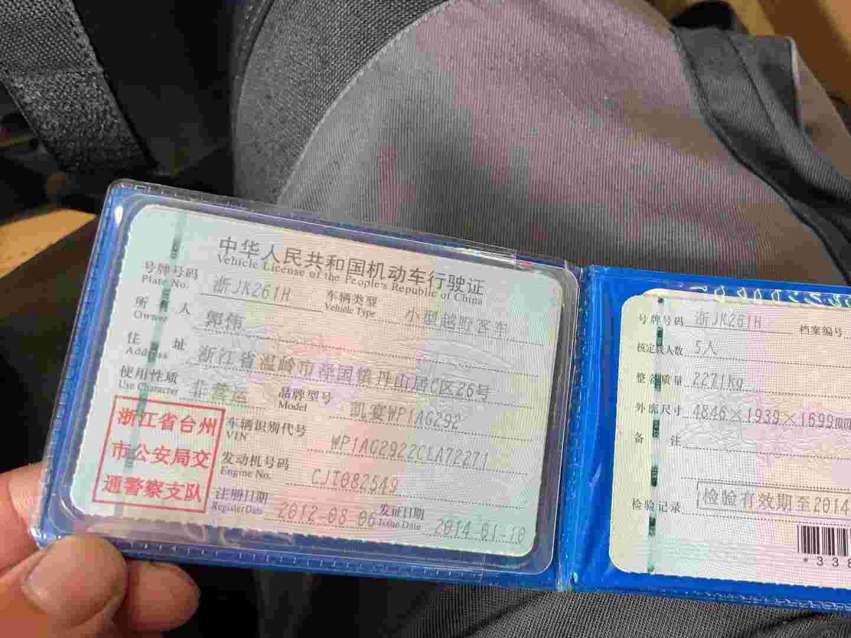 中华人民共和国机动车行驶证
Vehicle License of the People's Republic of China
号牌号码 浙JK261H 车辆类型 小型越野客车
Plate No. Vehicle Type
所有人 郭伟
Owner
住址 浙江省温岭市泽国镇丹山居C区26号
Address
使用性质 非营运 品牌型号 凯宴WP1AG292
Use Character Model
浙江省台州
市公安局交
通警察支队
车辆识别代号 WP1AG2922CLA72271
VIN
发动机号码 CJT082549
Engine No.
注册日期 2012-08-06 发证日期 2014-01-10
Register Date Issue Date
号牌号码 浙JK261H 档案编号
核定载人数 5人
整备质量 2271kg
外廓尺寸 4846×1939×1699mm
备注
检验记录 检验有效期至2014
*338